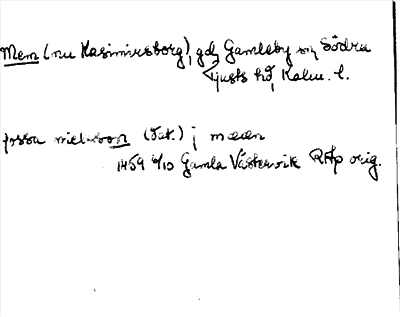 Mem (nu Kasimirsborg), gd, Gamleby sn, Södra
Tjusts hd, Kalm. l.
jossa nielsson (Dat.) j mæen
1459 6/10 Gamla Västervik RAp orig.